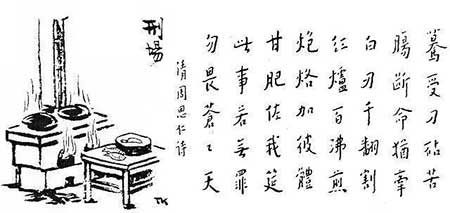 驀受刀砧苦
腸断命猶牽
白刃千翻割
紅爐百沸煎
炮烙加彼體
甘肥佐我筵
此事若無罪
勿畏蒼々天
清周思仁诗
刑場
TK